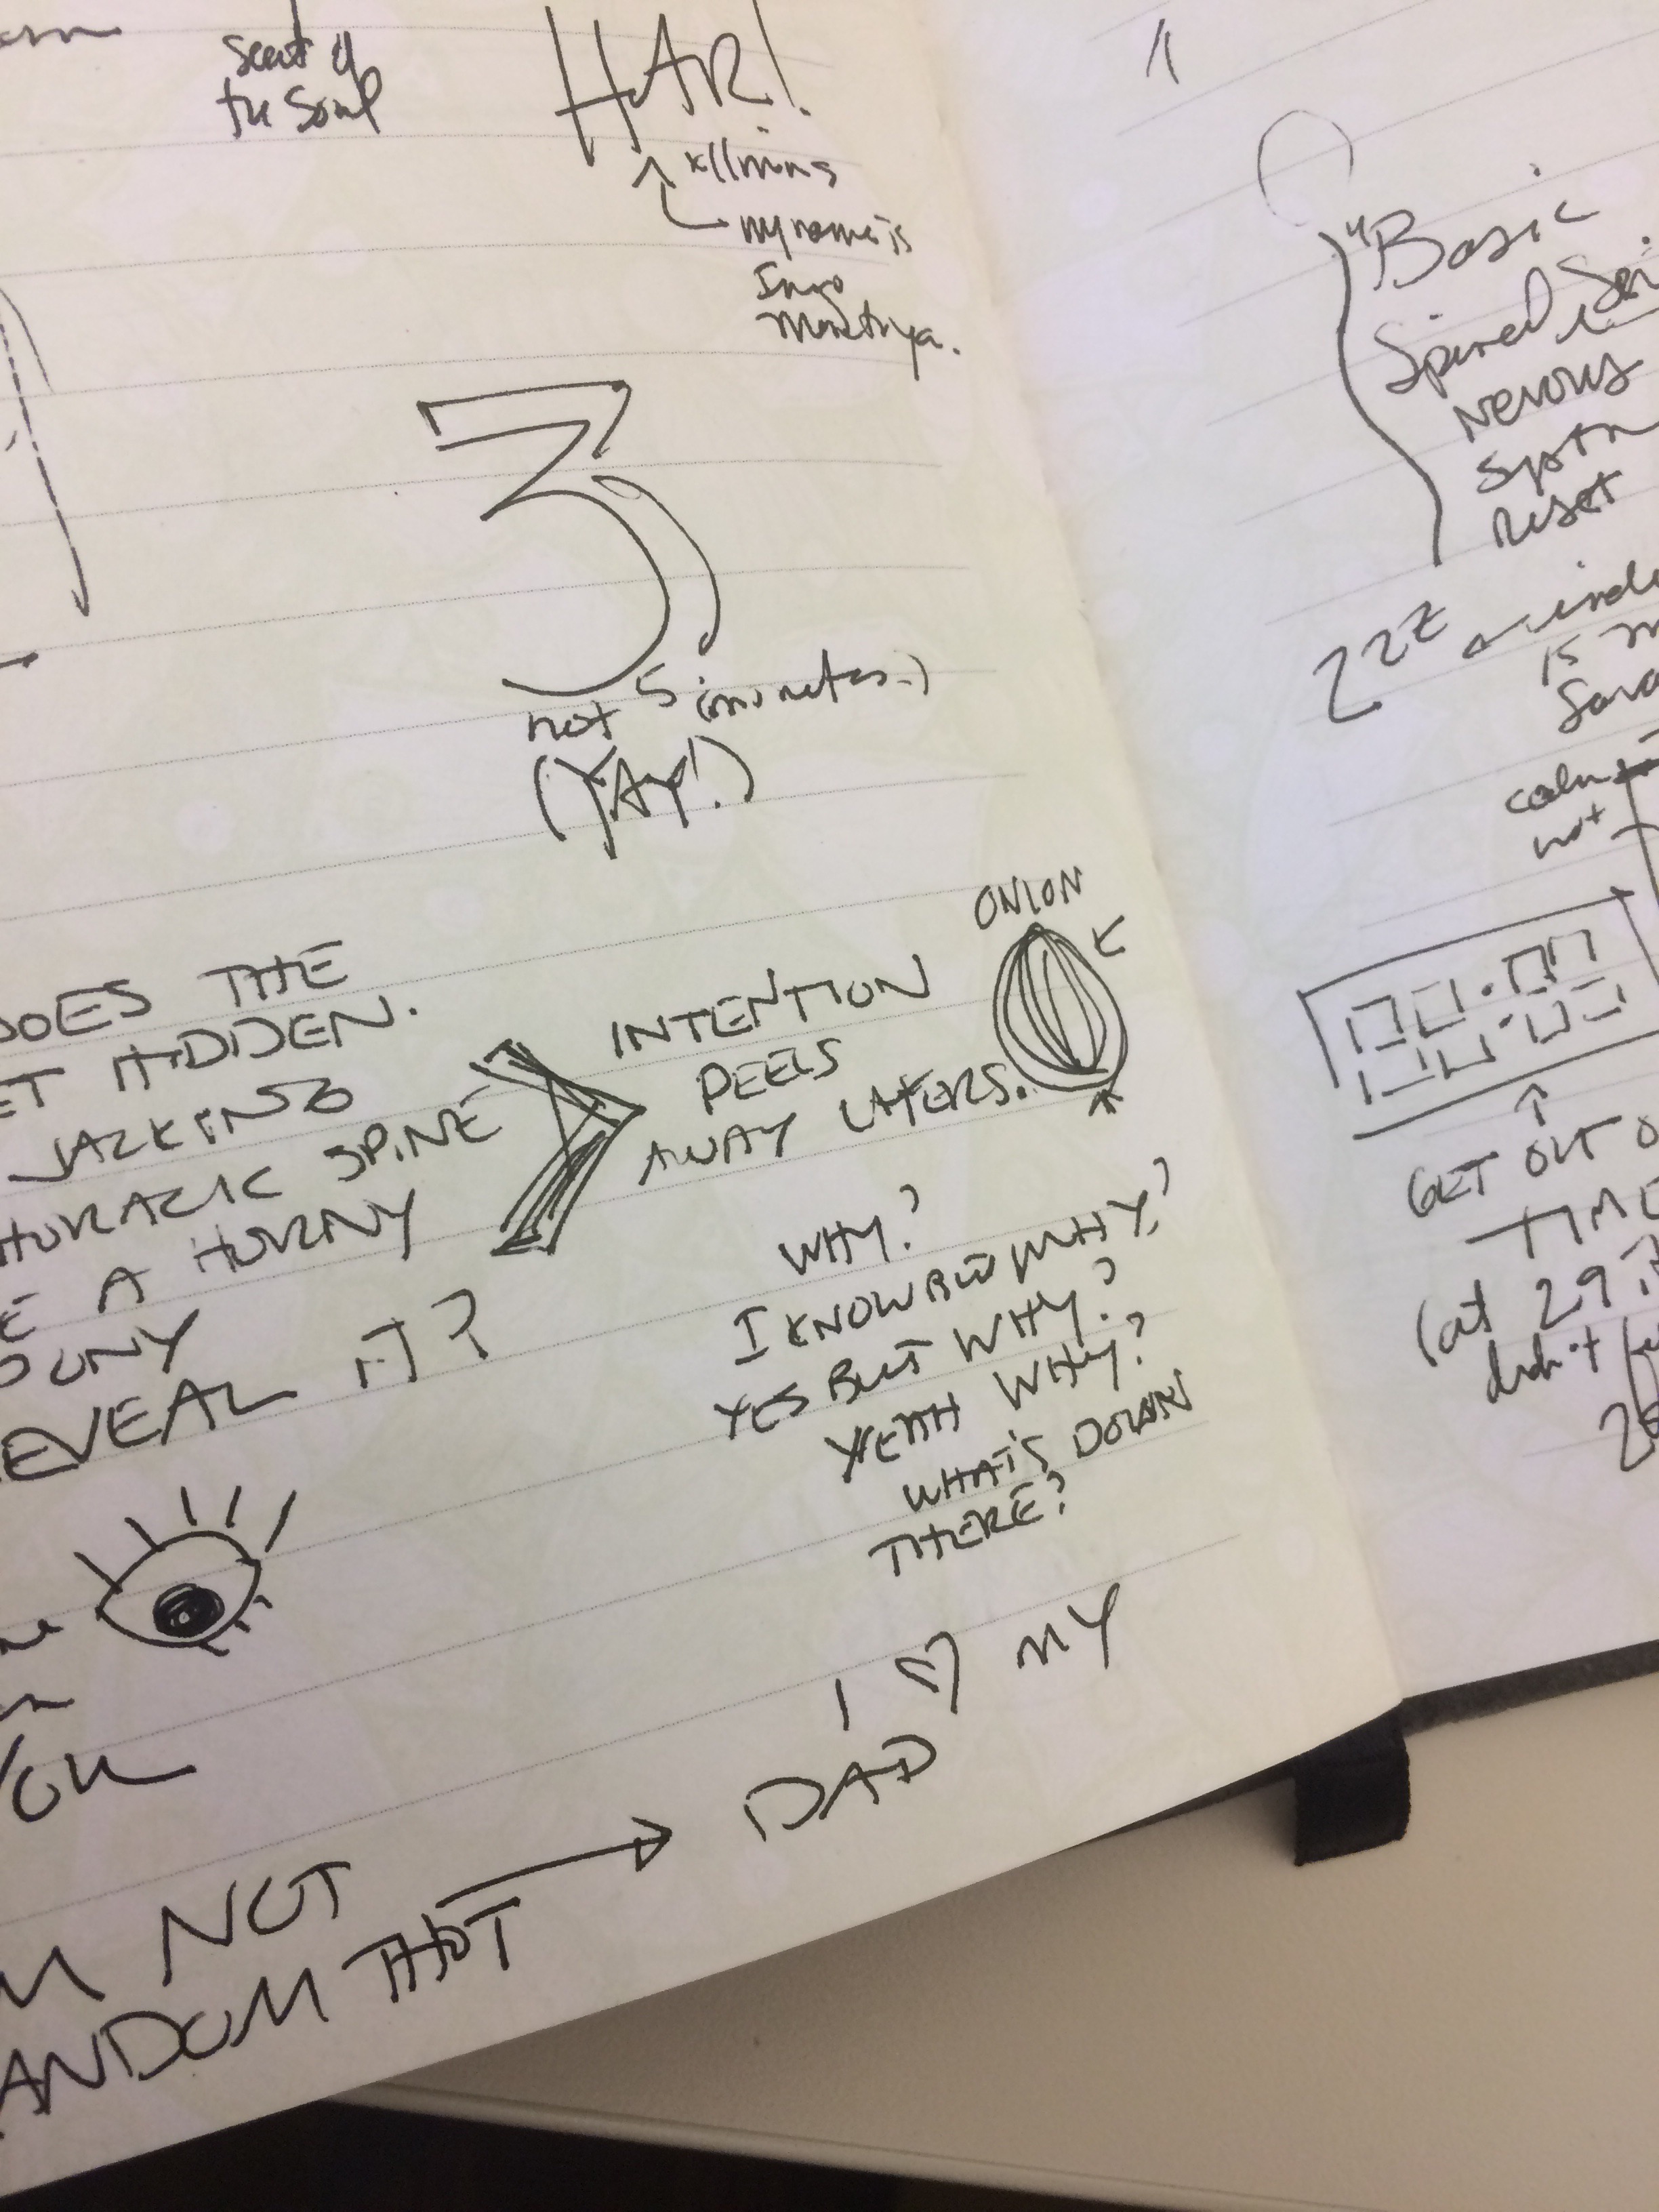 seat of
the Soul
HAR!
my name is
Inigo
Montoya.
3
not 5 (minutes.)
(YAY!)
DOES THE
ET HIDDEN.
JACKING
HORACIC SPINE
E A HORNY
PONY
EVEAL IT?
ONION
INTENTION
PEELS
AWAY LAYERS.
WHY?
I KNOW BUT WHY?
YES BUT WHY?
YEAH WHY?
WHAT'S DOWN
THERE?
YOU
I ♡ MY
DAD
M NOT
ANDOM THOT
1
"Basic
Spinal
Nervous
System
Reset
ZZZ
is
calm
not
00:00
GET OUT O
TIME
(at 29
didn't